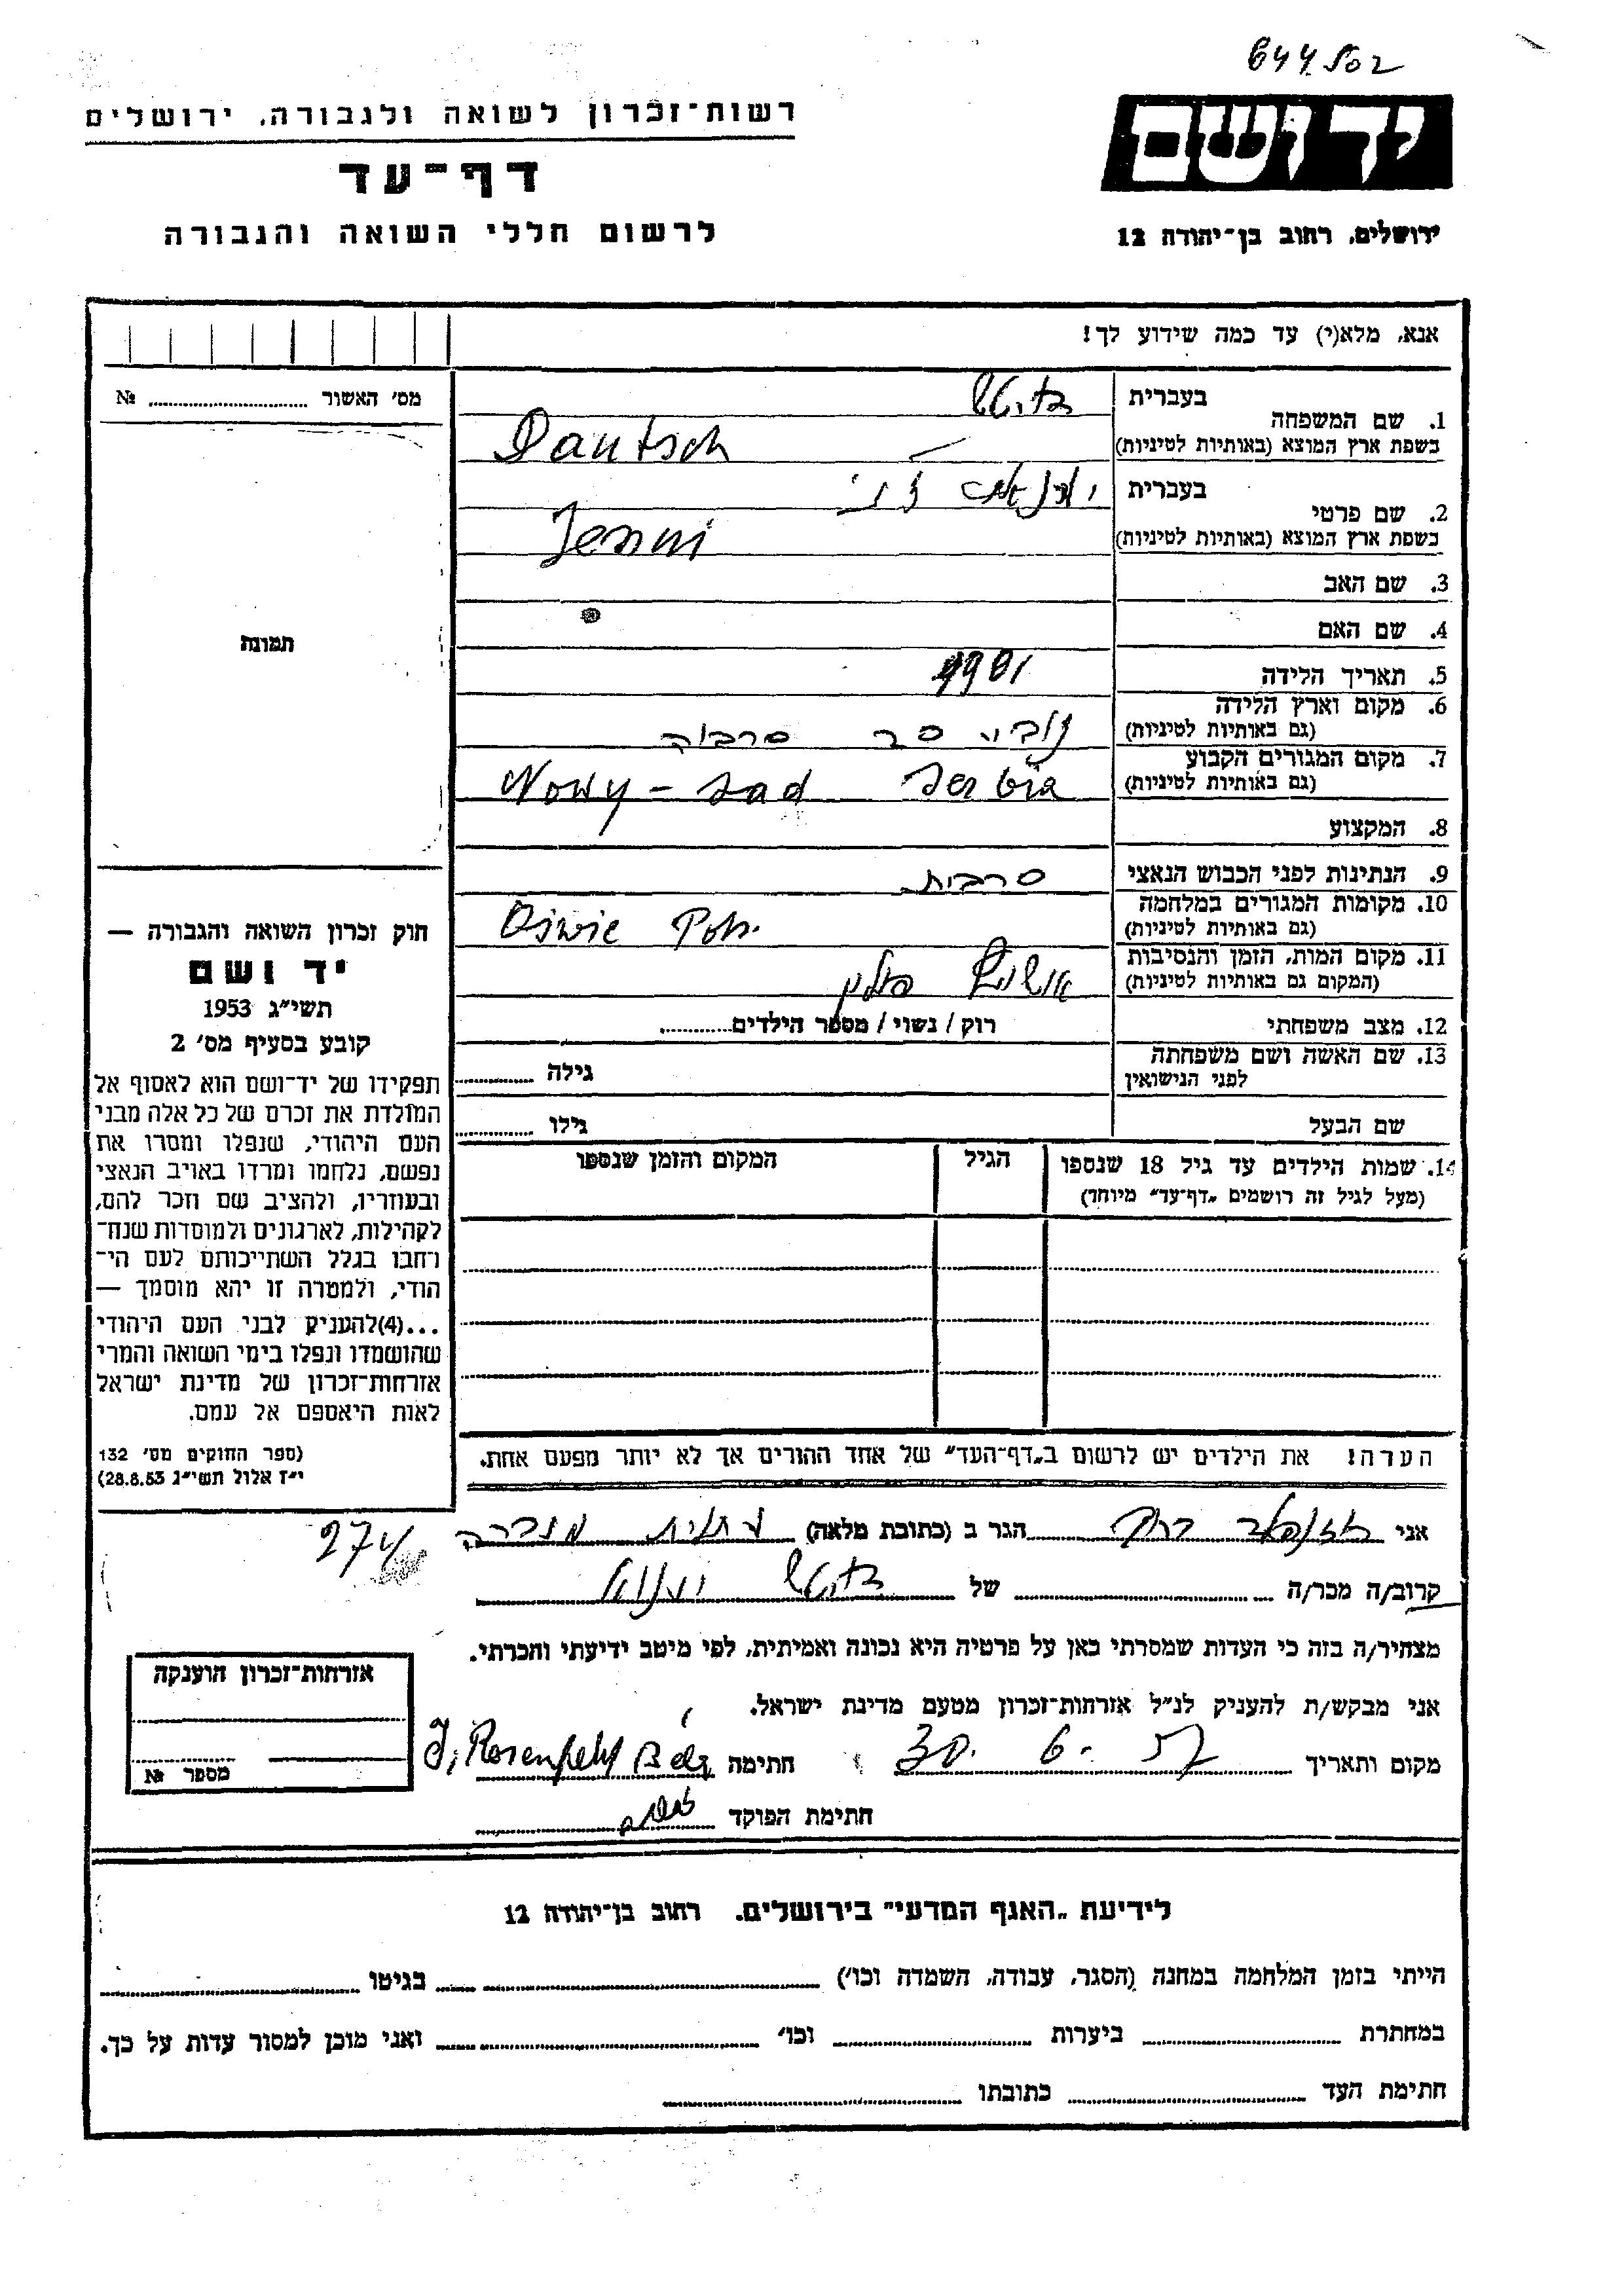 644502
רשות־זכרון לשואה ולגבורה, ירושלים
דף־עד
לרשום חללי השואה והגבורה
יד ושם
ירושלים, רחוב בן־יהודה 12
אנא, מלא(י) עד כמה שידוע לך!
מס׳ האשור № 
1. שם המשפחה
בעברית
בשפת ארץ המוצא (באותיות לטיניות) Dautsch
2. שם פרטי
בעברית
בשפת ארץ המוצא (באותיות לטיניות) Jenni
3. שם האב
4. שם האם
תמונה
5. תאריך הלידה 1901
6. מקום וארץ הלידה
(גם באותיות לטיניות) נובי סד סרביה
7. מקום המגורים הקבוע
(גם באותיות לטיניות) Nowy - sad Serbia
8. המקצוע
9. הנתינות לפני הכבוש הנאצי סרבית
10. מקומות המגורים במלחמה
(גם באותיות לטיניות)
11. מקום המות, הזמן והנסיבות
(המקום גם באותיות לטיניות) פולין
12. מצב משפחתי רוק / נשוי / מספר הילדים
13. שם האשה ושם משפחתה
לפני הנישואין גילה
שם הבעל גילו
14. שמות הילדים עד גיל 18 שנספו
(מעל לגיל זה רושמים „דף־עד״ מיוחד)
הגיל
המקום והזמן שנספו
הערה! את הילדים יש לרשום ב„דף־העד״ של אחד ההורים אך לא יותר מפעם אחת.
חוק זכרון השואה והגבורה —
יד ושם
תשי״ג 1953
קובע בסעיף מס׳ 2
תפקידו של יד־ושם הוא לאסוף אל
המולדת את זכרם של כל אלה מבני
העם היהודי, שנפלו ומסרו את
נפשם, נלחמו ומרדו באויב הנאצי
ובעוזריו, ולהציב שם וזכר להם,
לקהילות, לארגונים ולמוסדות שנח־
רחבו בגלל השתייכותם לעם הי־
הודי, ולמטרה זו יהא מוסמך —
...(4)להעניק לבני העם היהודי
שהושמדו ונפלו בימי השואה והמרי
אזרחות־זכרון של מדינת ישראל
לאות היאספם אל עמם.
(ספר החוקים מס׳ 132
י״ז אלול תשי״ג 28.8.53)
אני רוזנפלד הגר ב (כתובת מלאה) עתלית
קרוב/ה מכר/ה של
מצהיר/ה בזה כי העדות שמסרתי כאן על פרטיה היא נכונה ואמיתית, לפי מיטב ידיעתי והכרתי.
אני מבקש/ת להעניק לנ״ל אזרחות־זכרון מטעם מדינת ישראל.
מקום ותאריך 30. 6. 57 חתימה J. Rosenfeld
חתימת הפוקד
אזרחות־זכרון הוענקה
מספר №
לידיעת „האגף המדעי״ בירושלים. רחוב בן־יהודה 12
הייתי בזמן המלחמה במחנה (הסגר, עבודה, השמדה וכו׳) בגיטו
במחתרת ביערות וכו׳ ואני מוכן למסור עדות על כך.
חתימת העד כתובתו